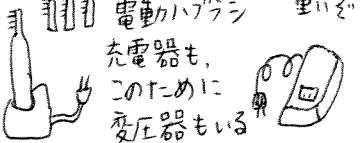 電動ハブラシ
重いぞ
充電器も,
このために
変圧器もいる